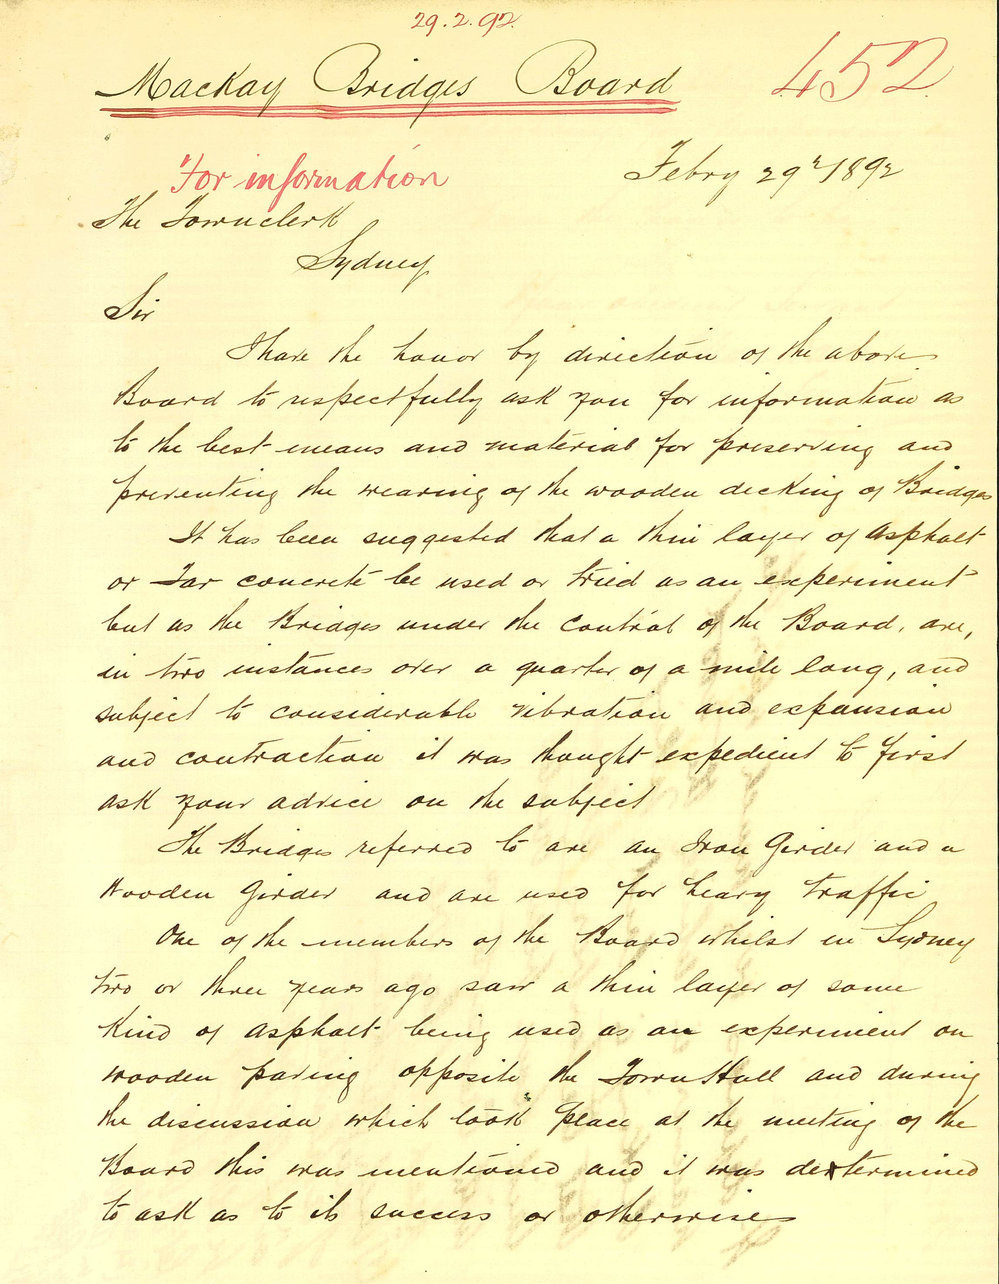 29.2.92.
Mackay Bridges Board
452
For information
Febry 29th/1892
The Townclerk
Sydney
Sir
I have the honor by direction of the above
Board to respectfully ask you for information as
to the best means and material for preserving and
preventing the wearing of the wooden decking of Bridges
It has been suggested that a thin layer of Asphalt
or Tar concrete be used or tried as an experiment
but as the Bridges under the control of the Board, are,
in two instances over a quarter of a mile long, and
subject to considerable vibration and expansion
and contraction it was thought expedient to first
ask your advice on the subject
The Bridges referred to are an Iron Girder and a
Wooden Girder and are used for heavy traffic
One of the members of the Board whilst in Sydney
two or three years ago saw a thin layer of some
kind of asphalt being used as an experiment on
wooden paving opposite the Town Hall and during
the discussion which took place at the meeting of the
Board this was mentioned and it was determined
to ask as to its success or otherwise